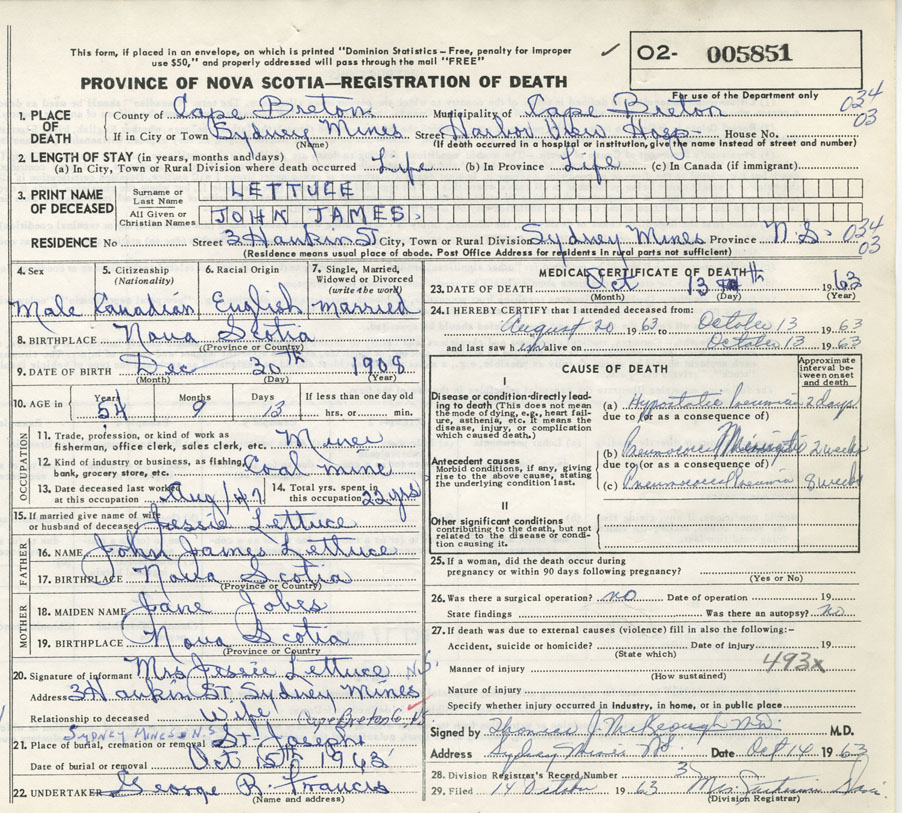 This form, if placed in an envelope, on which is printed "Dominion Statistics – Free, penalty for improper
use $50," and properly addressed will pass through the mail "FREE"
✓ 02- 005851
For use of the Department only
PROVINCE OF NOVA SCOTIA—REGISTRATION OF DEATH
1. PLACE OF DEATH
County of Cape Breton Municipality of Cape Breton 034
If in City or Town Sydney Mines Street Harbor View Hosp. House No. 03
(Name) (If death occurred in a hospital or institution, give the name instead of street and number)
2. LENGTH OF STAY (in years, months and days)
(a) In City, Town or Rural Division where death occurred Life (b) In Province Life (c) In Canada (if immigrant)
3. PRINT NAME OF DECEASED
Surname or Last Name LETTUCE
All Given or Christian Names JOHN JAMES.
RESIDENCE No Street 3 Hankin St City, Town or Rural Division Sydney Mines Province N.S. 034 03
(Residence means usual place of abode. Post Office Address for residents in rural parts not sufficient)
4. Sex Male
5. Citizenship (Nationality) Canadian
6. Racial Origin English
7. Single, Married, Widowed or Divorced (write the word) married
8. BIRTHPLACE Nova Scotia
(Province or Country)
9. DATE OF BIRTH Dec 30th 1908
(Month) (Day) (Year)
10. AGE in Years 54 Months 9 Days 13 If less than one day old hrs. or min.
OCCUPATION
11. Trade, profession, or kind of work as fisherman, office clerk, sales clerk, etc. Miner
12. Kind of industry or business, as fishing, bank, grocery store, etc. Coal mine
13. Date deceased last worked at this occupation Aug /47
14. Total yrs. spent in this occupation 22 yrs
15. If married give name of wife or husband of deceased Jessie Lettuce
FATHER
16. NAME John James Lettuce
17. BIRTHPLACE Nova Scotia
(Province or Country)
MOTHER
18. MAIDEN NAME Jane Jobes
19. BIRTHPLACE Nova Scotia
(Province or Country)
20. Signature of informant Mrs Jessie Lettuce
Address 3 Hankin ST Sydney Mines N.S.
Relationship to deceased Wife Cape Breton Co. N.S.
SYDNEY MINES N.S
21. Place of burial, cremation or removal St Josephs
Date of burial or removal Oct 15th 1963
22. UNDERTAKER George B. Francis
(Name and address)
MEDICAL CERTIFICATE OF DEATH
23. DATE OF DEATH Oct 13th 1963
(Month) (Day) (Year)
24. I HEREBY CERTIFY that I attended deceased from:
August 20 1963 to October 13 1963
and last saw him alive on October 13 1963
CAUSE OF DEATH
Approximate interval between onset and death
I
Disease or condition directly leading to death (This does not mean the mode of dying, e.g., heart failure, asthenia, etc. It means the disease, injury, or complication which caused death.)
(a) Hypostatic Pneumonia 2 days
due to (or as a consequence of)
Antecedent causes
Morbid conditions, if any, giving rise to the above cause, stating the underlying condition last.
(b) Meningitis 2 weeks
due to (or as a consequence of)
(c) Pneumococcal Pneumonia 8 weeks
II
Other significant conditions contributing to the death, but not related to the disease or condition causing it.
25. If a woman, did the death occur during pregnancy or within 90 days following pregnancy?
(Yes or No)
26. Was there a surgical operation? no Date of operation 19
State findings Was there an autopsy? no
27. If death was due to external causes (violence) fill in also the following:–
Accident, suicide or homicide? Date of injury 19
(State which)
Manner of injury 493x
(How sustained)
Nature of injury
Specify whether injury occurred in industry, in home, or in public place
Signed by Thomas J. McKeough M.D. M.D.
Address Sydney Mines NS. Date Oct 14 1963
28. Division Registrar's Record Number 3
29. Filed 14 October 1963 Mrs.
(Division Registrar)